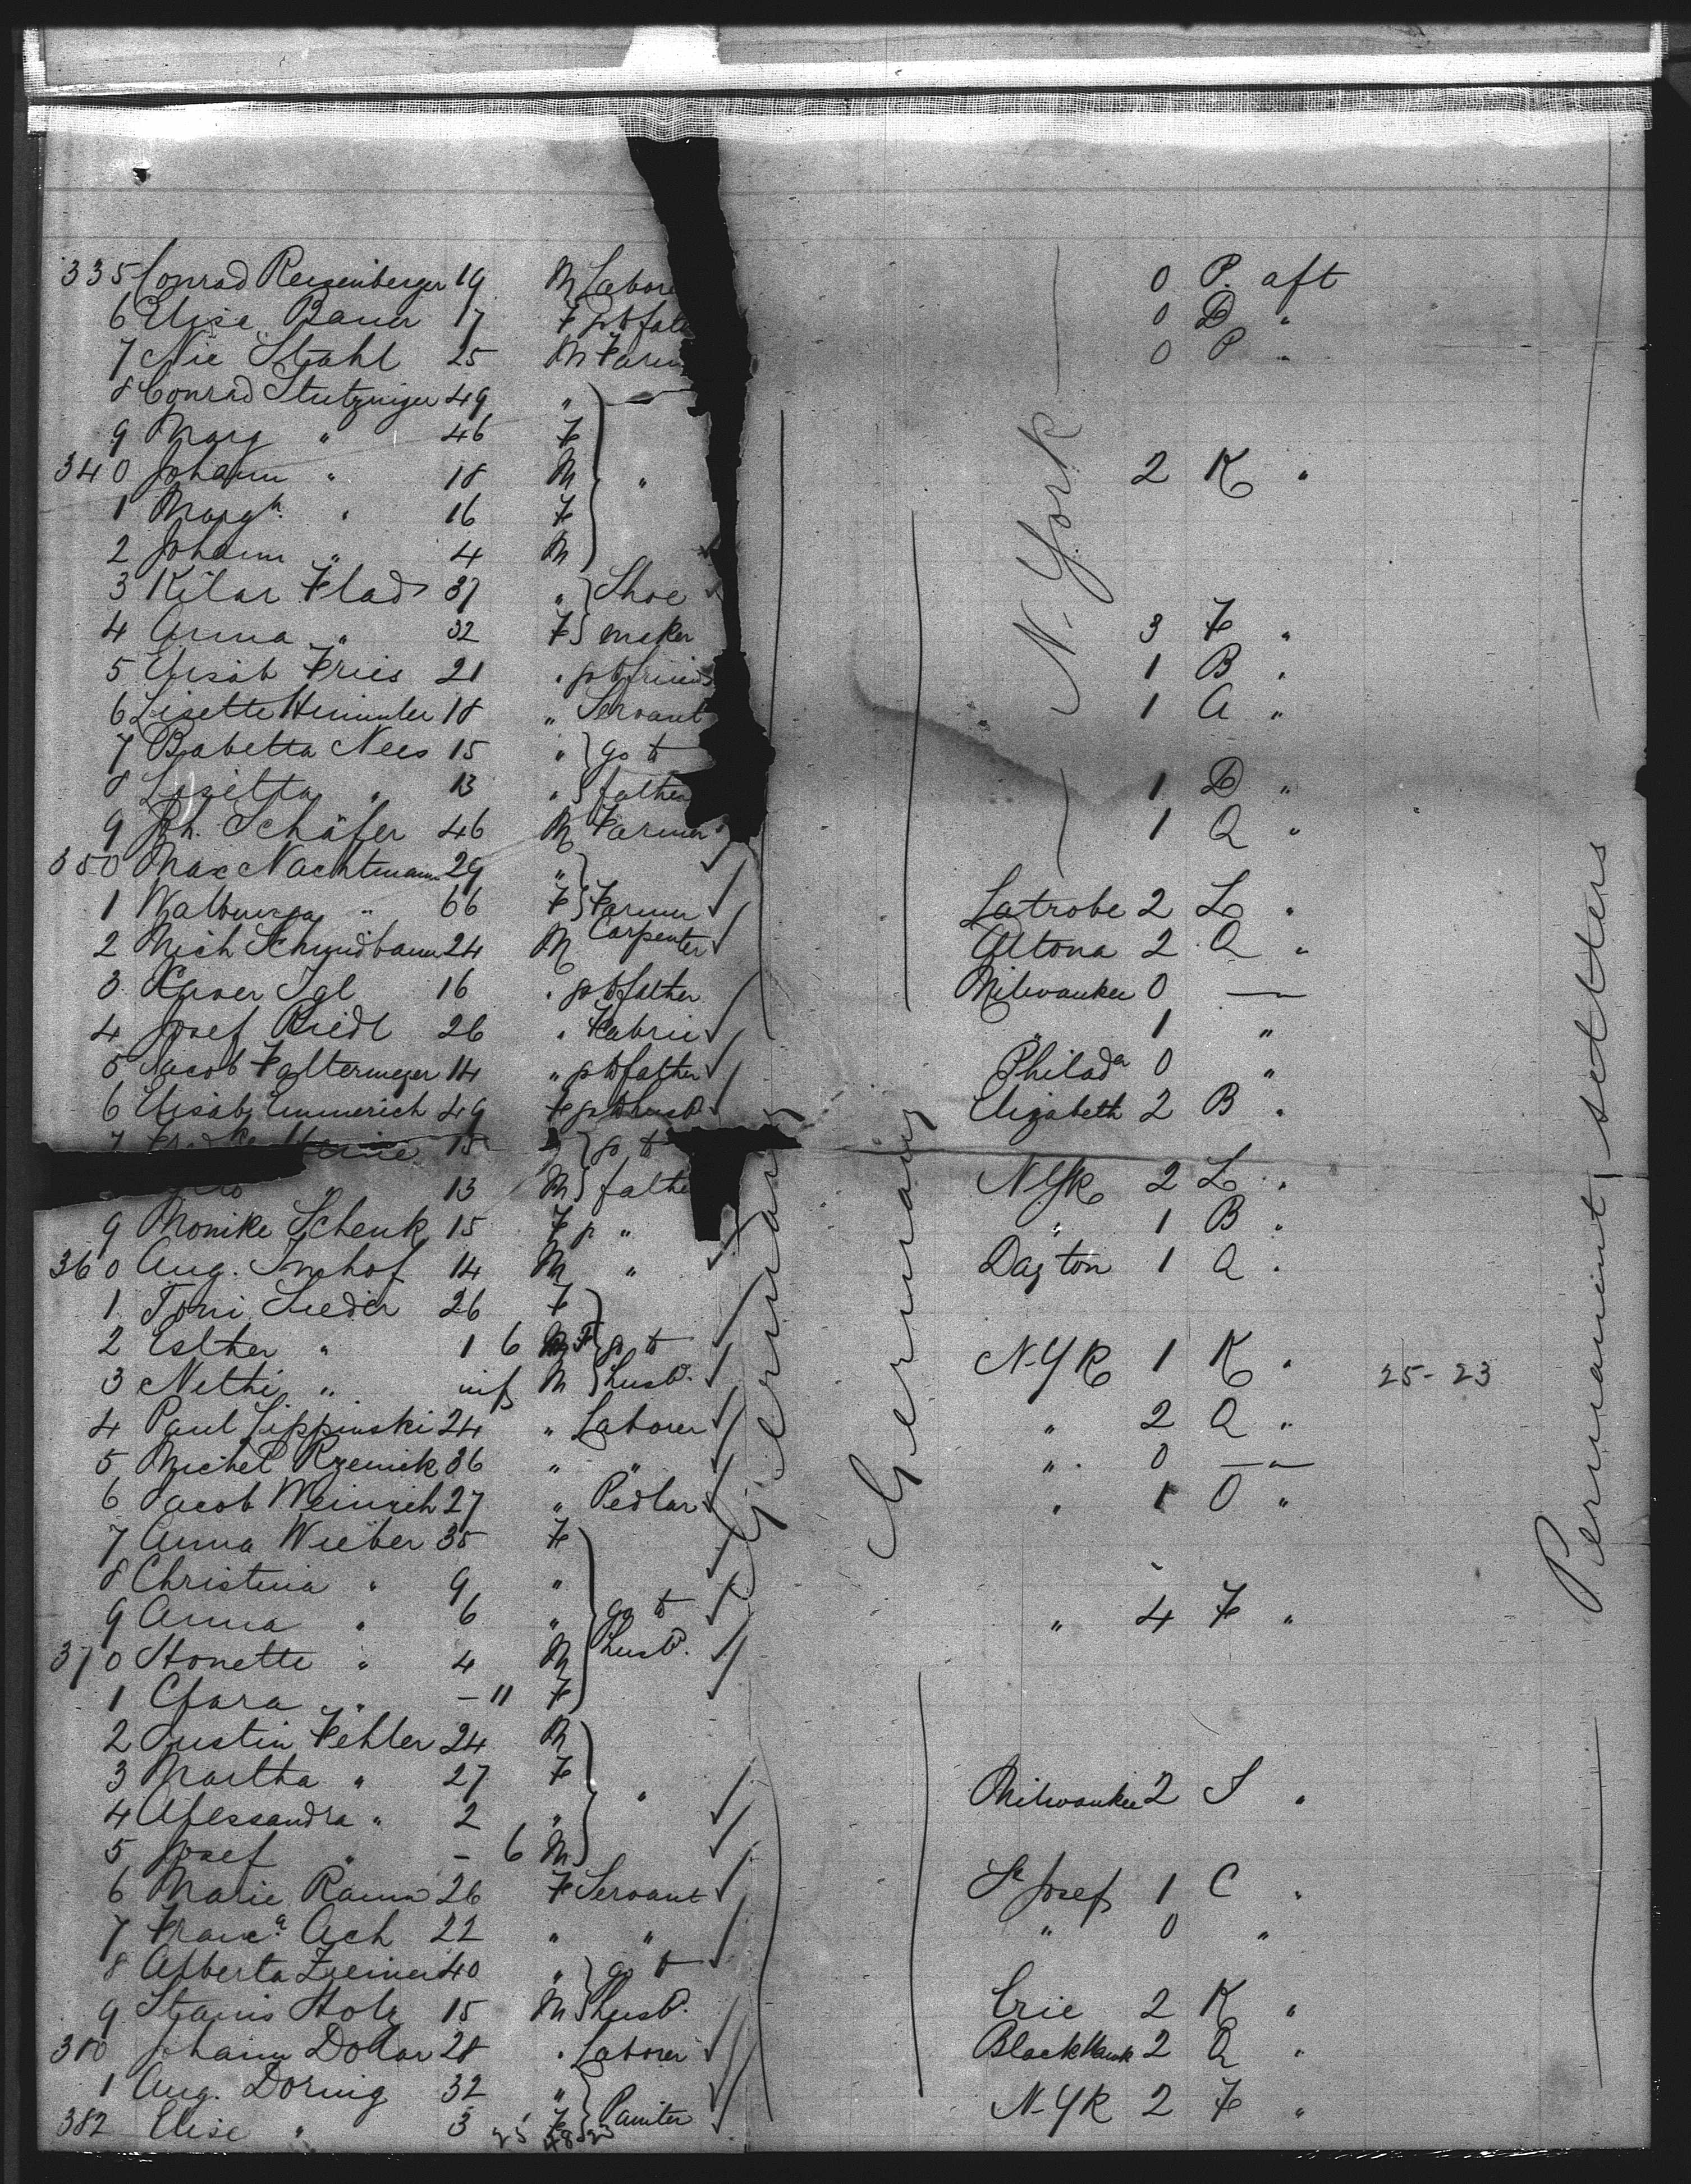 335 Conrad Reisenberger 19 M Labore 0 P. aft
6 Elise Bauer 17 F go to fath 0 D "
7 Nic Stahl 25 M Farm 0 P "
8 Conrad Stutzniger 49 "
9 Marg " 46 F
340 Johann " 18 M " 2 K "
1 Margh. " 16 F
2 Johann " 4 M
3 Kilar Flad 37 " Shoe
4 Anna " 32 F maker 3 F "
5 Elisab Fries 21 " go to friend 1 B "
6 Lisette Himmler 18 " Servant 1 A "
7 Babetta Nees 15 " go to
8 Lisetta " 13 " father 1 D "
9 Joh. Schäfer 46 M Farmer 1 Q "
N. York
350 Max Nachtmann 29 "
1 Walburga " 66 F Farmer Latrobe 2 L "
2 Mich Schmidbauer 24 M Carpenter Altona 2 Q "
3 Xaver Igl 16 " go to father Milwaukee 0 —
4 Josef Riedl 26 " Fabric " 1 "
5 Jacob Faltermeyer 14 " go to father Philada 0 "
6 Elisab. Emmerich 49 F go to husb. Elizabeth 2 B "
7 15 " go to
" 13 M fathe N.Yk 2 L "
9 Monike Schenk 15 F go " " 1 B "
360 Aug. Imhof 14 M " Dayton 1 Q "
1 Toni Lieder 26 F
2 Esther " 1 6 F go to N-YK 1 K "
3 Nethi " inf M husb. 25-23
4 Paul Lippinski 24 " Laborer " 2 Q "
5 Michel Rzenick 36 " " " 0 —
6 Jacob Weinrich 27 " Pedlar " 1 O "
7 Anna Wieber 35 F
8 Christina " 9 "
9 Anna " 6 " go to " 4 F "
370 Honette " 4 M husb.
1 Clara " - 11 F
2 Justin Fehler 24 M
3 Martha " 27 F
4 Alessandra " 2 " " Milwaukee 2 S "
5 Josef " - 6 M
6 Marie Raum 26 F Servant St Josef 1 C "
7 Franca. Ach 22 " " " 0 "
8 Alberta Zreiner 40 " go to
9 Stanis Holz 15 M husb. Erie 2 K "
380 Johann Dollar 28 " Laborer Black Hawk 2 Q "
1 Aug. Doring 32 "
382 Elise " 3 F Painter N-YK 2 F "
Germany
Germany
Permanent settlers